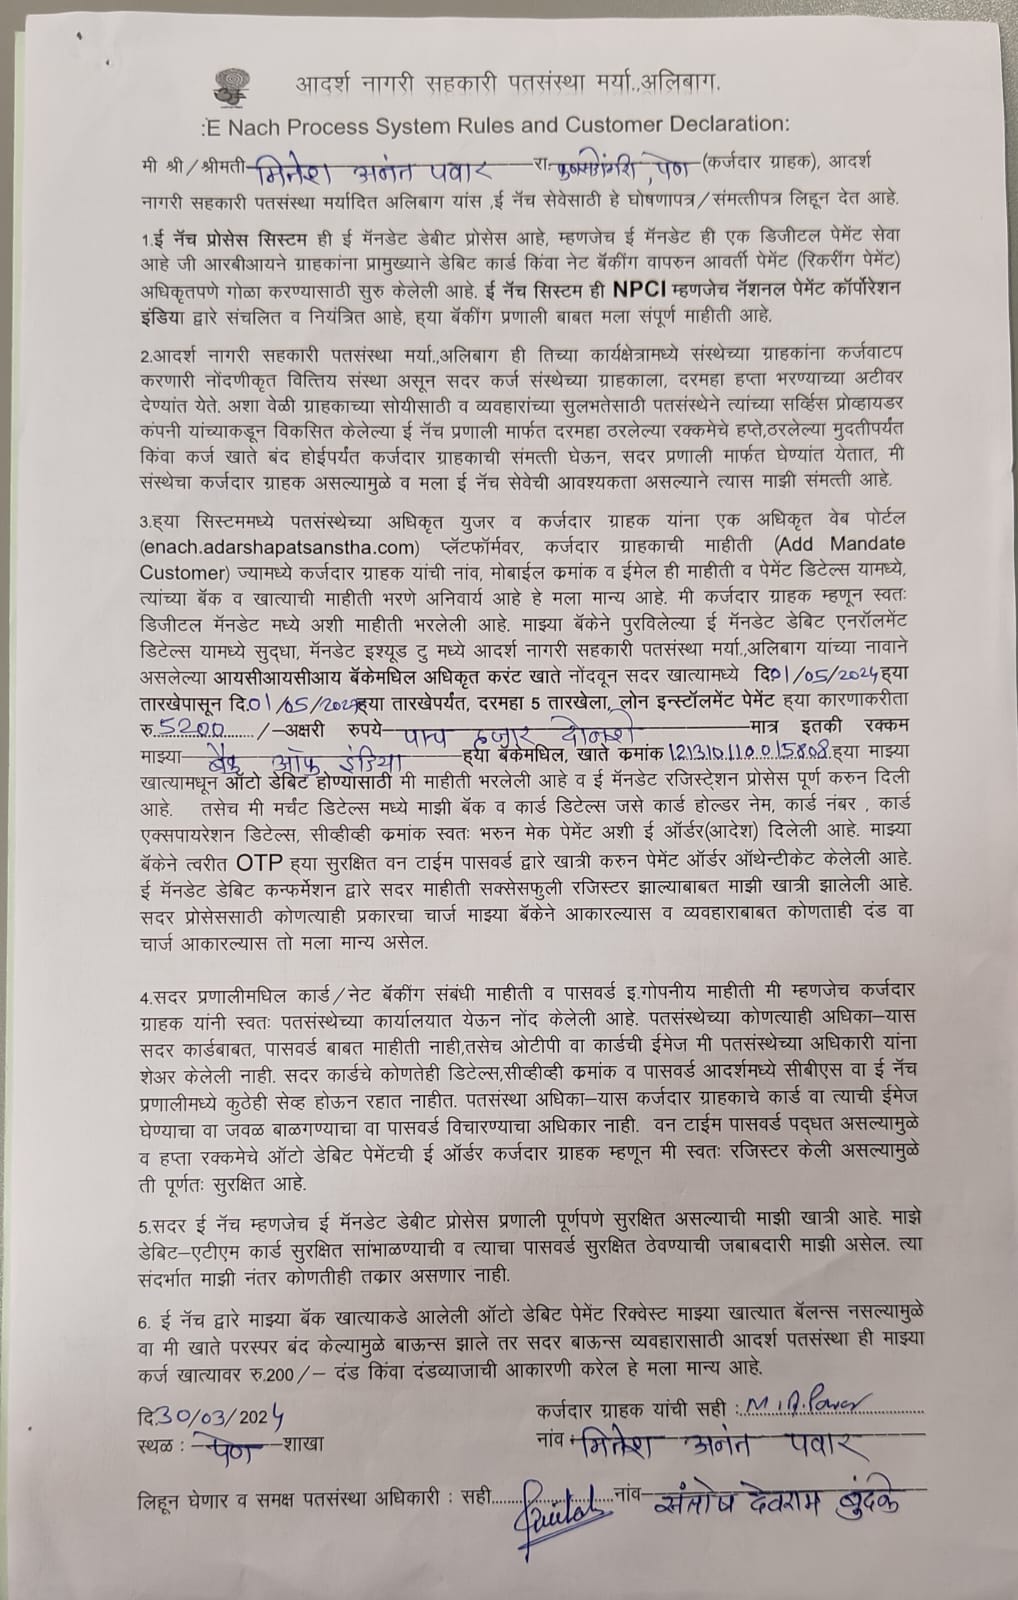 आदर्श नागरी सहकारी पतसंस्था मर्या.,अलिबाग.
:E Nach Process System Rules and Customer Declaration:
मी श्री/श्रीमती मितेश अनंत पवार रा. पेण (कर्जदार ग्राहक), आदर्श
नागरी सहकारी पतसंस्था मर्यादित अलिबाग यांस ,ई नॅच सेवेसाठी हे घोषणापत्र/संमत्तीपत्र लिहून देत आहे.
1.ई नॅच प्रोसेस सिस्टम ही ई मॅनडेट डेबीट प्रोसेस आहे, म्हणजेच ई मॅनडेट ही एक डिजीटल पेमेंट सेवा
आहे जी आरबीआयने ग्राहकांना प्रामुख्याने डेबिट कार्ड किंवा नेट बॅकींग वापरुन आवर्ती पेमेंट (रिकरींग पेमेंट)
अधिकृतपणे गोळा करण्यासाठी सुरु केलेली आहे. ई नॅच सिस्टम ही NPCI म्हणजेच नॅशनल पेमेंट कॉर्पोरेशन
इंडिया द्वारे संचलित व नियंत्रित आहे, ह्या बॅकींग प्रणाली बाबत मला संपूर्ण माहीती आहे.
2.आदर्श नागरी सहकारी पतसंस्था मर्या.,अलिबाग ही तिच्या कार्यक्षेत्रामध्ये संस्थेच्या ग्राहकांना कर्जवाटप
करणारी नोंदणीकृत वित्तिय संस्था असून सदर कर्ज संस्थेच्या ग्राहकाला, दरमहा हप्ता भरण्याच्या अटीवर
देण्यांत येते. अशा वेळी ग्राहकाच्या सोयीसाठी व व्यवहारांच्या सुलभतेसाठी पतसंस्थेने त्यांच्या सर्व्हिस प्रोव्हायडर
कंपनी यांच्याकडून विकसित केलेल्या ई नॅच प्रणाली मार्फत दरमहा ठरलेल्या रक्कमेचे हप्ते,ठरलेल्या मुदतीपर्यंत
किंवा कर्ज खाते बंद होईपर्यंत कर्जदार ग्राहकाची संमत्ती घेऊन, सदर प्रणाली मार्फत घेण्यांत येतात, मी
संस्थेचा कर्जदार ग्राहक असल्यामुळे व मला ई नॅच सेवेची आवश्यकता असल्याने त्यास माझी संमत्ती आहे.
3.ह्या सिस्टममध्ये पतसंस्थेच्या अधिकृत युजर व कर्जदार ग्राहक यांना एक अधिकृत वेब पोर्टल
(enach.adarshapatsanstha.com) प्लॅटफॉर्मवर, कर्जदार ग्राहकाची माहीती (Add Mandate
Customer) ज्यामध्ये कर्जदार ग्राहक यांची नांव, मोबाईल क्रमांक व ईमेल ही माहीती व पेमेंट डिटेल्स यामध्ये,
त्यांच्या बॅक व खात्याची माहीती भरणे अनिवार्य आहे हे मला मान्य आहे. मी कर्जदार ग्राहक म्हणून स्वतः
डिजीटल मॅनडेट मध्ये अशी माहीती भरलेली आहे. माझ्या बॅकेने पुरविलेल्या ई मॅनडेट डेबिट एनरॉलमेंट
डिटेल्स यामध्ये सुद्धा, मॅनडेट इश्यूड टु मध्ये आदर्श नागरी सहकारी पतसंस्था मर्या.,अलिबाग यांच्या नावाने
असलेल्या आयसीआयसीआय बॅकेमधिल अधिकृत करंट खाते नोंदवून सदर खात्यामध्ये दि.01/05/2024ह्या
तारखेपासून दि.01/05/2027ह्या तारखेपर्यंत, दरमहा 5 तारखेला, लोन इन्स्टॉलमेंट पेमेंट ह्या कारणाकरीता
रु.5200/-अक्षरी रुपये पाच हजार दोनशे मात्र इतकी रक्कम
माझ्या बँक ऑफ इंडिया ह्या बॅकेमधिल, खाते क्रमांक 121310110015808 ह्या माझ्या
खात्यामधून ऑटो डेबिट होण्यासाठी मी माहीती भरलेली आहे व ई मॅनडेट रजिस्ट्रेशन प्रोसेस पूर्ण करुन दिली
आहे. तसेच मी मर्चंट डिटेल्स मध्ये माझी बॅक व कार्ड डिटेल्स जसे कार्ड होल्डर नेम, कार्ड नंबर , कार्ड
एक्सपायरेशन डिटेल्स, सीव्हीव्ही क्रमांक स्वतः भरुन मेक पेमेंट अशी ई ऑर्डर(आदेश) दिलेली आहे. माझ्या
बॅकेने त्वरीत OTP ह्या सुरक्षित वन टाईम पासवर्ड द्वारे खात्री करुन पेमेंट ऑर्डर ऑथेन्टीकेट केलेली आहे.
ई मॅनडेट डेबिट कन्फर्मेशन द्वारे सदर माहीती सक्सेसफुली रजिस्टर झाल्याबाबत माझी खात्री झालेली आहे.
सदर प्रोसेससाठी कोणत्याही प्रकारचा चार्ज माझ्या बॅकेने आकारल्यास व व्यवहाराबाबत कोणताही दंड वा
चार्ज आकारल्यास तो मला मान्य असेल.
4.सदर प्रणालीमधिल कार्ड/नेट बॅकींग संबंधी माहीती व पासवर्ड इ.गोपनीय माहीती मी म्हणजेच कर्जदार
ग्राहक यांनी स्वतः पतसंस्थेच्या कार्यालयात येऊन नोंद केलेली आहे. पतसंस्थेच्या कोणत्याही अधिका–यास
सदर कार्डबाबत, पासवर्ड बाबत माहीती नाही,तसेच ओटीपी वा कार्डची ईमेज मी पतसंस्थेच्या अधिकारी यांना
शेअर केलेली नाही. सदर कार्डचे कोणतेही डिटेल्स,सीव्हीव्ही क्रमांक व पासवर्ड आदर्शमध्ये सीबीएस वा ई नॅच
प्रणालीमध्ये कुठेही सेव्ह होऊन रहात नाहीत. पतसंस्था अधिका–यास कर्जदार ग्राहकाचे कार्ड वा त्याची ईमेज
घेण्याचा वा जवळ बाळगण्याचा वा पासवर्ड विचारण्याचा अधिकार नाही. वन टाईम पासवर्ड पद्धत असल्यामुळे
व हप्ता रक्कमेचे ऑटो डेबिट पेमेंटची ई ऑर्डर कर्जदार ग्राहक म्हणून मी स्वतः रजिस्टर केली असल्यामुळे
ती पूर्णतः सुरक्षित आहे.
5.सदर ई नॅच म्हणजेच ई मॅनडेट डेबीट प्रोसेस प्रणाली पूर्णपणे सुरक्षित असल्याची माझी खात्री आहे. माझे
डेबिट–एटीएम कार्ड सुरक्षित सांभाळण्याची व त्याचा पासवर्ड सुरक्षित ठेवण्याची जबाबदारी माझी असेल. त्या
संदर्भात माझी नंतर कोणतीही तक्रार असणार नाही.
6. ई नॅच द्वारे माझ्या बॅक खात्याकडे आलेली ऑटो डेबिट पेमेंट रिक्वेस्ट माझ्या खात्यात बॅलन्स नसल्यामुळे
वा मी खाते परस्पर बंद केल्यामुळे बाऊन्स झाले तर सदर बाऊन्स व्यवहारासाठी आदर्श पतसंस्था ही माझ्या
कर्ज खात्यावर रु.200/– दंड किंवा दंडव्याजाची आकारणी करेल हे मला मान्य आहे.
दि.30/03/2024 कर्जदार ग्राहक यांची सही : M.A.Pawar
स्थळ : पेण शाखा नांव मितेश अनंत पवार
लिहून घेणार व समक्ष पतसंस्था अधिकारी : सही नांव संतोष देवराम बुंदके